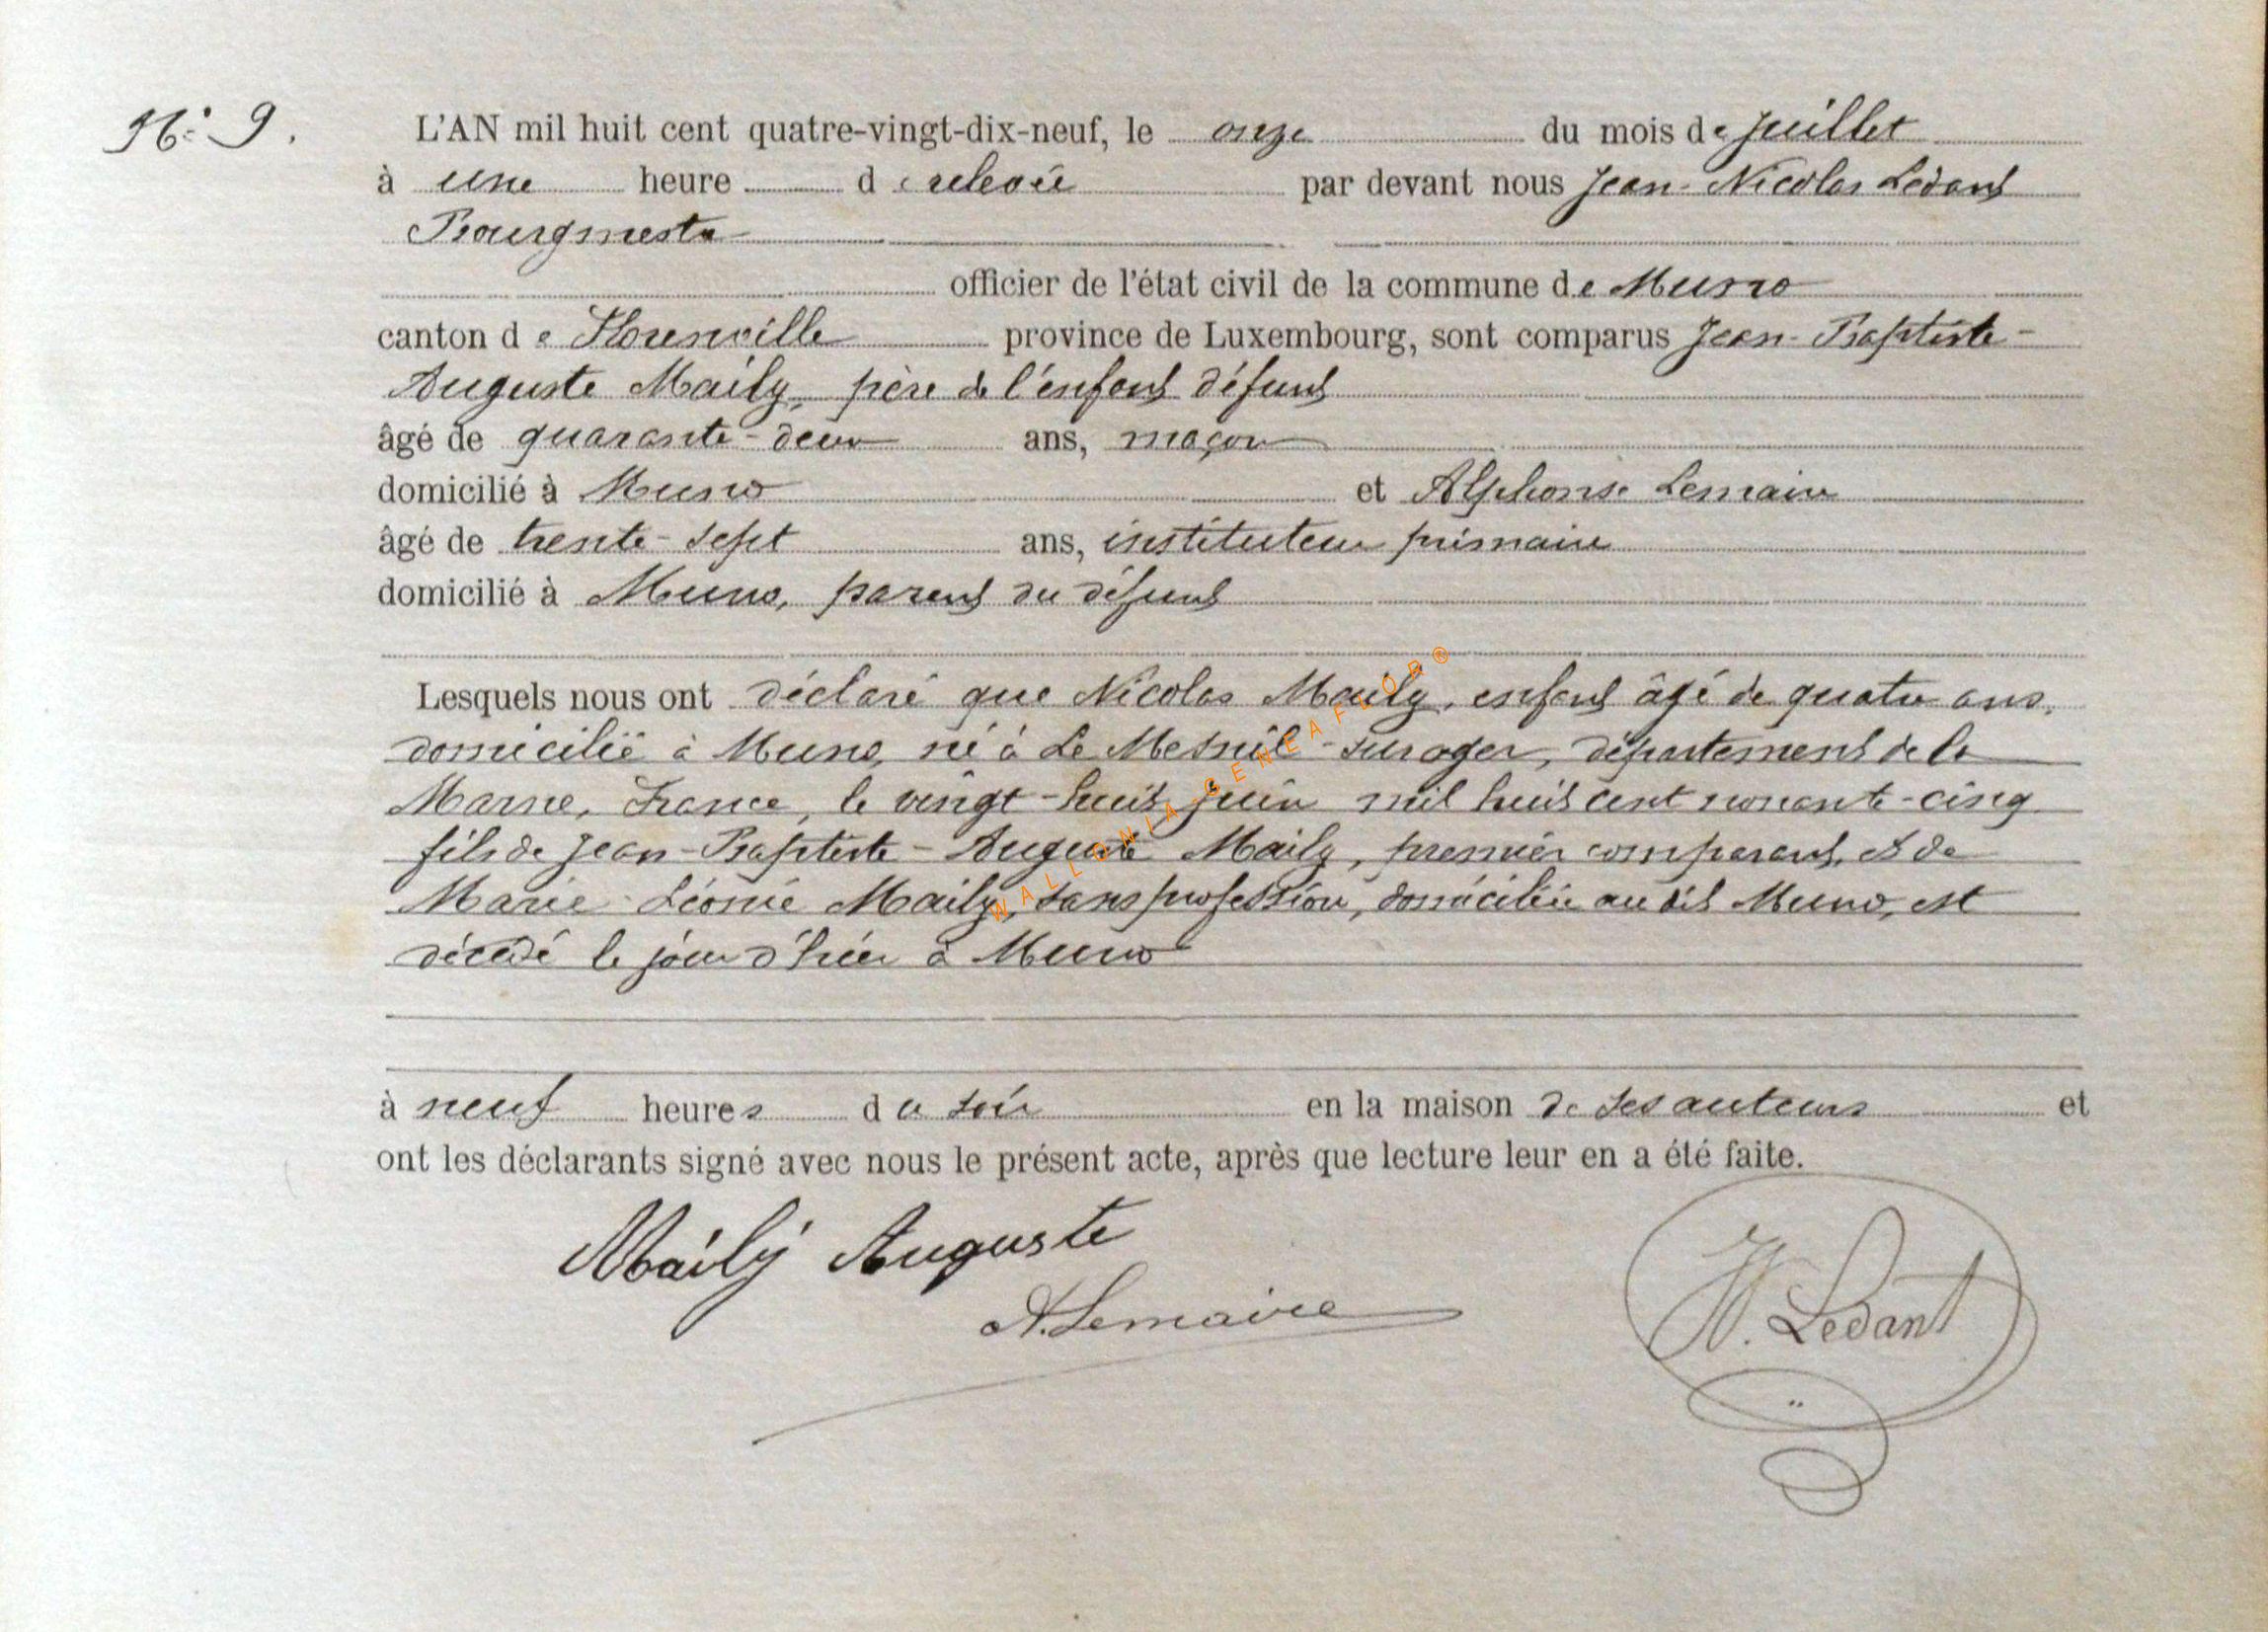 N° 9.
L'AN mil huit cent quatre-vingt-dix-neuf, le onze du mois de juillet
à une heure de relevée par devant nous Jean-Nicolas Ledant
Bourgmestre
officier de l'état civil de la commune de Muno
canton de Florenville province de Luxembourg, sont comparus Jean-Baptiste-
Auguste Maily, père de l'enfant défunt
âgé de quarante-deux ans, maçon
domicilié à Muno et Alphonse Lemaire
âgé de trente-sept ans, instituteur primaire
domicilié à Muno, parent du défunt
Lesquels nous ont déclaré que Nicolas Maily, enfant âgé de quatre ans,
domicilié à Muno, né à Le Mesnil-sur oger, département de la
Marne, France, le vingt-huit juin mil huit cent nonante-cinq
fils de Jean-Baptiste-Auguste Maily, premier comparant, et de
Marie Léonie Maily, sans profession, domiciliée au dit Muno, est
décédé le jour d'hier à Muno
à neuf heures du soir en la maison de ses auteurs et
ont les déclarants signé avec nous le présent acte, après que lecture leur en a été faite.
Maily Auguste
A. Lemaire
N. Ledant
WALLONIA GENEAFLOR®